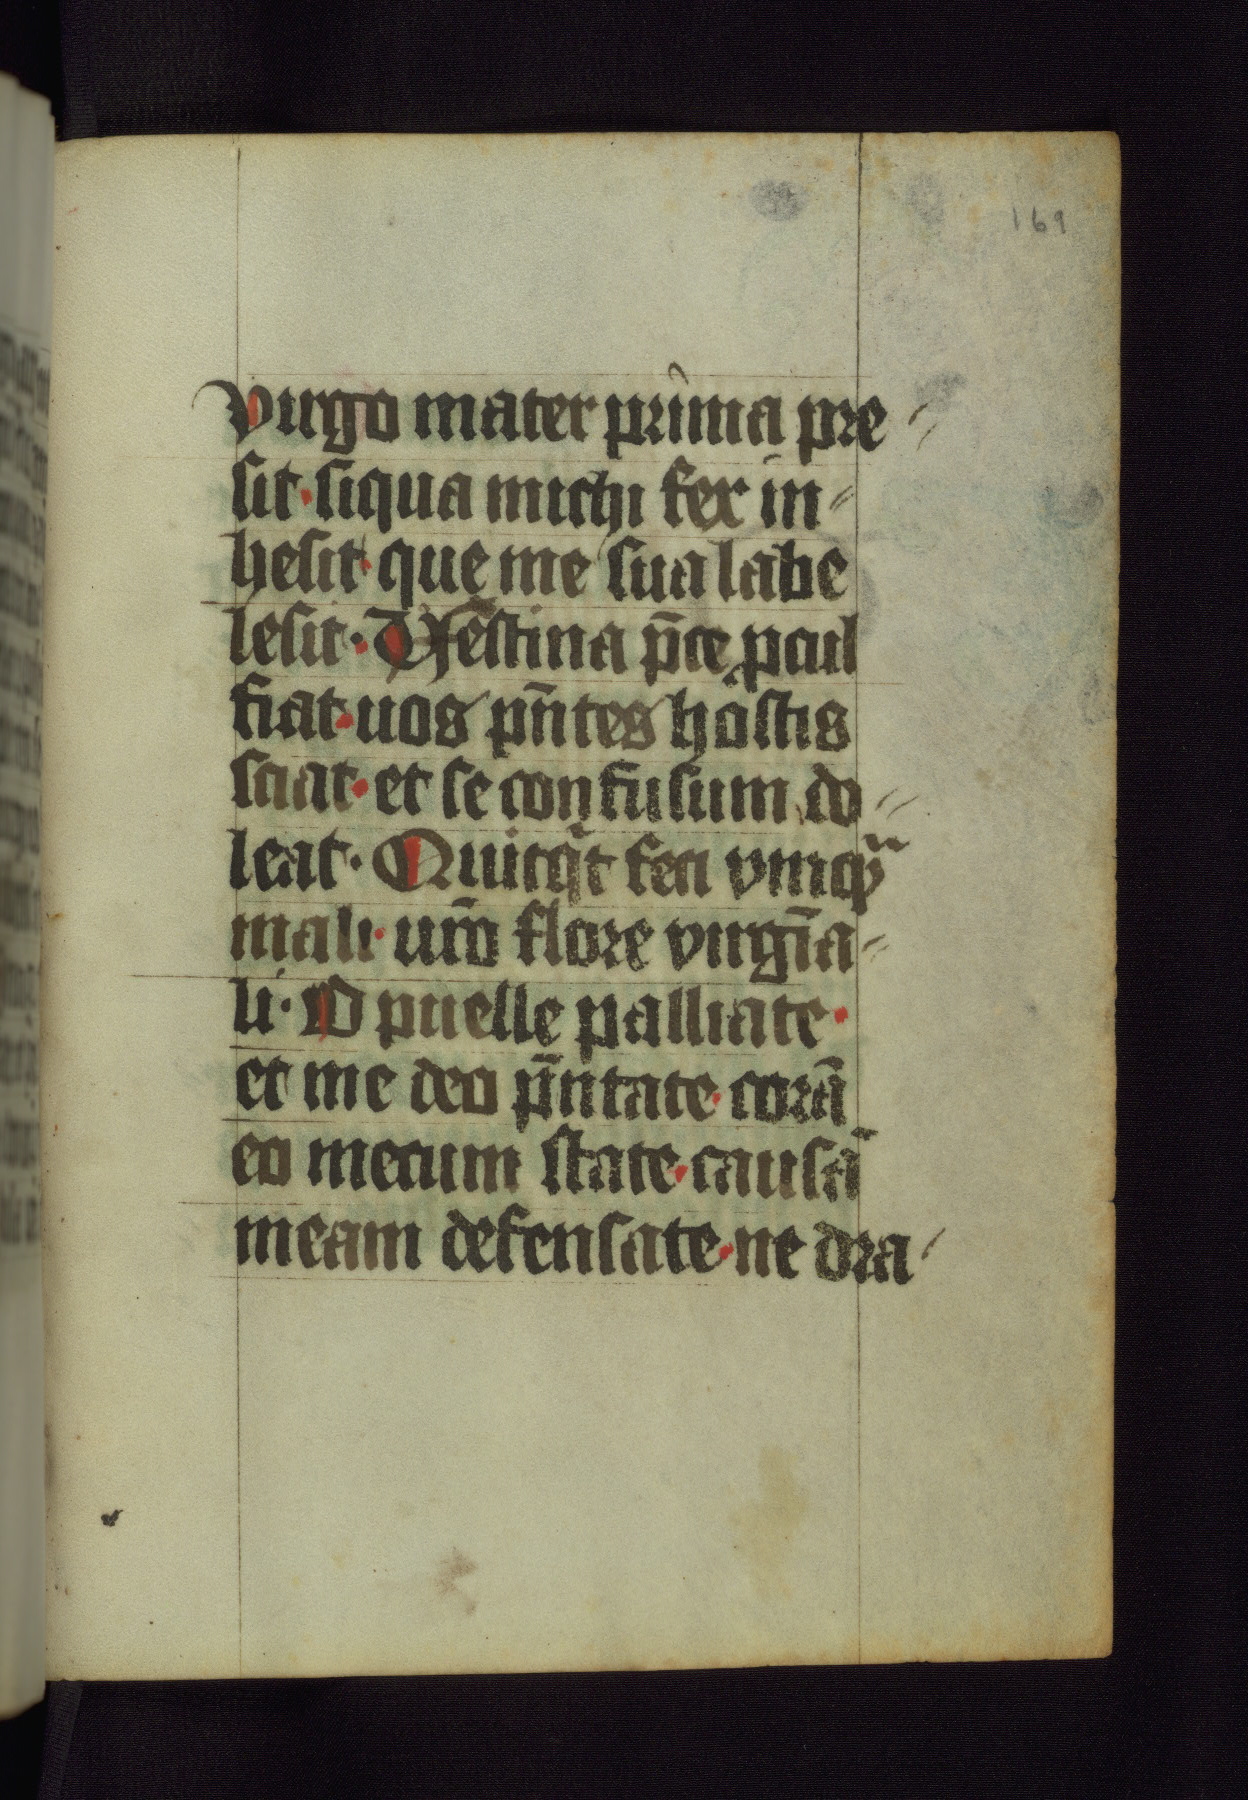 169
Virgo mater prima pre
sit· siqua michi fex in-
hesit· que me sua labe
lesit· Vestina p̄ce pcul
fiat· uos pn̄tes hostis
sciat· et se confusum do
leat· Quitqͥt feci vmqͣ
mali· ur̄o flore virgīa
li· O puelle palliate·
et me deo pn̄tate· corā
eo mecum state· causā
meam defensate· ne dra